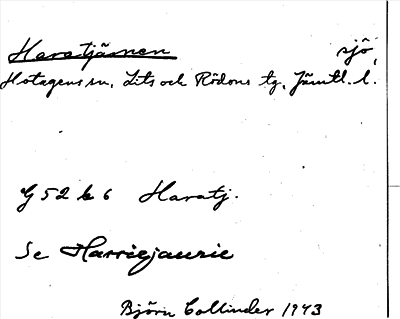 Haratjärnen sjö,
Hotagens sn, Lits och Rödöns tg, Jämtl. l.
G 52 b 6 Haratj.
Se Harriejaurie
Björn Collinder 1943